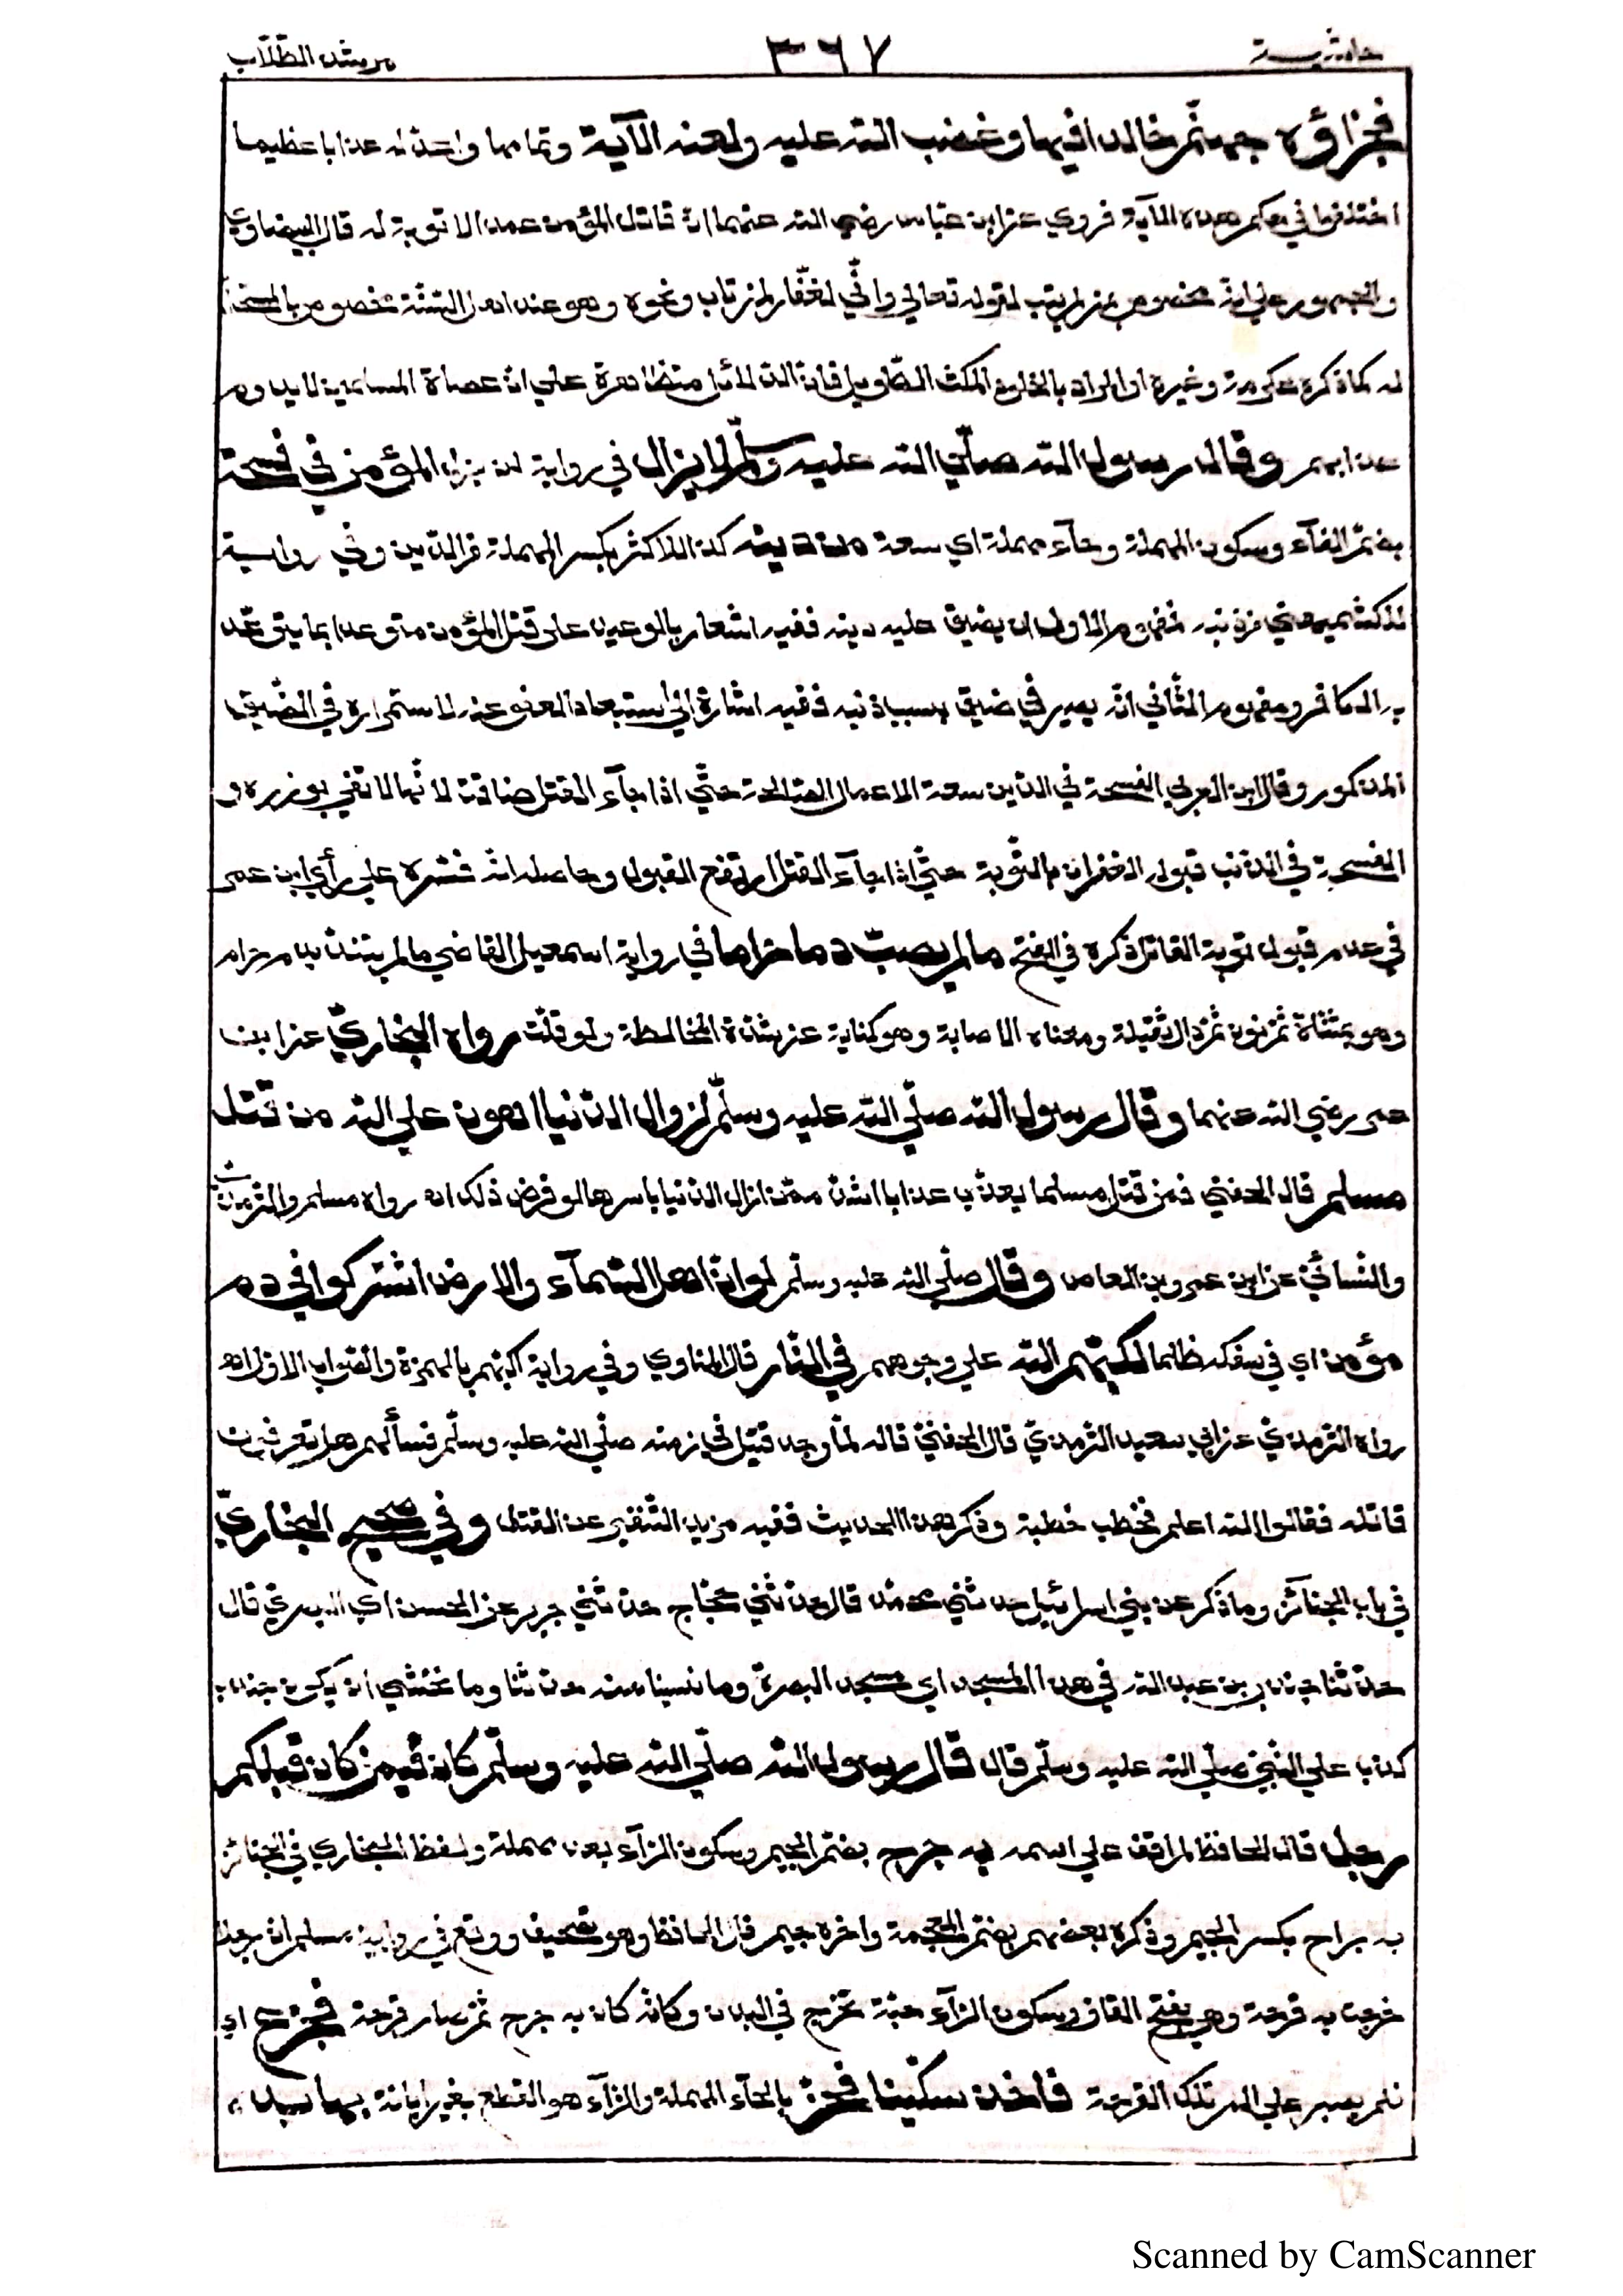 حاشية ٣٦٧ مرشد الطّلّاب
فجزاؤه جهنّم خالدا فيها وغضب الله عليه ولعنه الآية وتمامها واعدّ له عذابا عظيما
اختلفوا في حكم هذه الآية فروي عن ابن عبّاس رضي الله عنهما انّ قاتل المؤمن عمدا لا توبة له قال البيضاويّ
والجمهور على انّه مخصوص بمن لم يتب لقوله تعالي وانّي لغفّار لمن تاب ونحوه وهو عند اهل السّنّة مخصوص بالمستحلّ
له كما ذكره عكرمة وغيره او المراد بالخلود المكث الطّويل فانّ الدّلائل متظاهرة علي انّ عصاة المسلمين لا يدوم
عذابهم وقال رسول الله صلّي الله عليه وسلّم لا يزال في رواية لن يزال المؤمن في فسحة
بضمّ الفآء وسكون المهملة وحآء مهملة اي سعة من دينه كذا للاكثر بكسر المهملة من الدّين وفي رواية
للكشميهني من ذنبه فمفهوم الاول ان يضيق عليه دينه ففيه اشعار بالوعيد على قتل المؤمن متوعدا بما يتوعّد
به الكافر ومفهوم الثّاني انّه يصير في ضيق بسبب ذنبه ففيه اشارة الي استبعاد العفو عنه لاستمراره في الضّيق
المذكور وقال ابن العربي الفسحة في الدّين سعة الاعمال الصّالحة حتّي اذا جآء القتل ضاقت لانّها لا تفي بوزره و
الفسحة في الذنب قبوله الغفران بالتّوبة حتّي اذا جآء القتل ارتفع القبول وحاصله انّه فسّره علي رأي ابن عمر
في عدم قبول توبة القاتل ذكره في الفتح مالم يصب دما حراما في رواية اسمعيل القاضي مالم يتندّ بدم حرام
وهو بمثنّاة ثمّ نون ثمّ دال ثقيلة ومعناه الاصابة وهو كناية عن شدّة المخالطة ولو قلّت رواه البخاريّ عن ابن
عمر رضي الله عنهما وقال رسول الله صلّي الله عليه وسلّم لزوال الدّنيا اهون علي الله من قتل
مسلم قال الحفنيّ فمن قتل مسلما يعذّب عذابا اشدّ ممّن ازال الدّنيا باسرها لو فرض ذلك اه رواه مسلم والترمذيّ
والنّسائيّ عن ابن عمرو بن العاص وقال صلّي الله عليه وسلّم لو انّ اهل السّمآء والارض اشتركوا في دم
مؤمن اي في سفكه ظلما لكبّهم الله علي وجوههم في النّار قال المناوي وفي رواية اكبّهم بالهمزة والصّواب الاوّل اه
رواه الترمذيّ عن ابي سعيد الترمذيّ قال الحفنيّ قاله لمّا وجد قتيل في زمنه صلّي الله عليه وسلّم فسألهم هل تعرفون
قاتله فقالوا الله اعلم فخطب خطبة وذكر هذا الحديث ففيه مزيد التّنفير عن القتل وفي صحيح البخاريّ
في باب الجنائز وما ذكر عن بني اسرائيل حدثني محمّد قال حدّثني حجّاج حدّثني جرير عن الحسن اي البصريّ قال
حدّثنا جندب بن عبد الله في هذا المسجد اي مسجد البصرة وما نسينا منه حدّثنا وما نخشي ان يكون جندب
كذب علي النّبيّ صلّي الله عليه وسلّم قال قال رسول الله صلّي الله عليه وسلّم كان فيمن كان قبلكم
رجل قال الحافظ لم اقف علي اسمه به جرح بضمّ الجيم وسكون الرّآء بعدها مهملة ولفظ البخاري في الجنائز
به جراح بكسر الجيم وذكره بعضهم بضمّ المعجمة واخره جيم قال الحافظ وهو تصحيف ووقع في رواية مسلم انّ رجلا
خرجت به قرحة وهي بفتح القاف وسكون الرّآء حبّة تخرج في البدن وكانّه كان به جرح ثمّ صار قرحة فجزع اي
فلم يصبر علي الم تلك القرحة فاخذ سكّينا فحزّ بالحآء المهملة والزّآء هو القطع بغير ابانة بها يده
Scanned by CamScanner